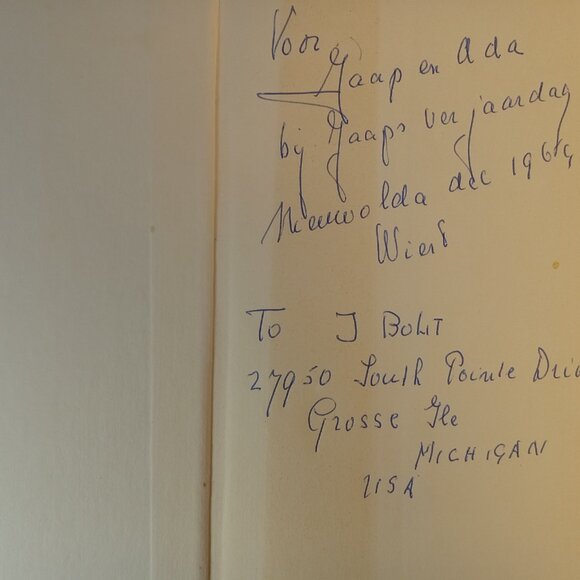 Voor
Jaap en Ada
bij Jaaps verjaardag
Nieuwolda dec 1969
Wiert
To J Bolit
27950 South Pointe Driv
Grosse Ile
MICHIGAN
USA